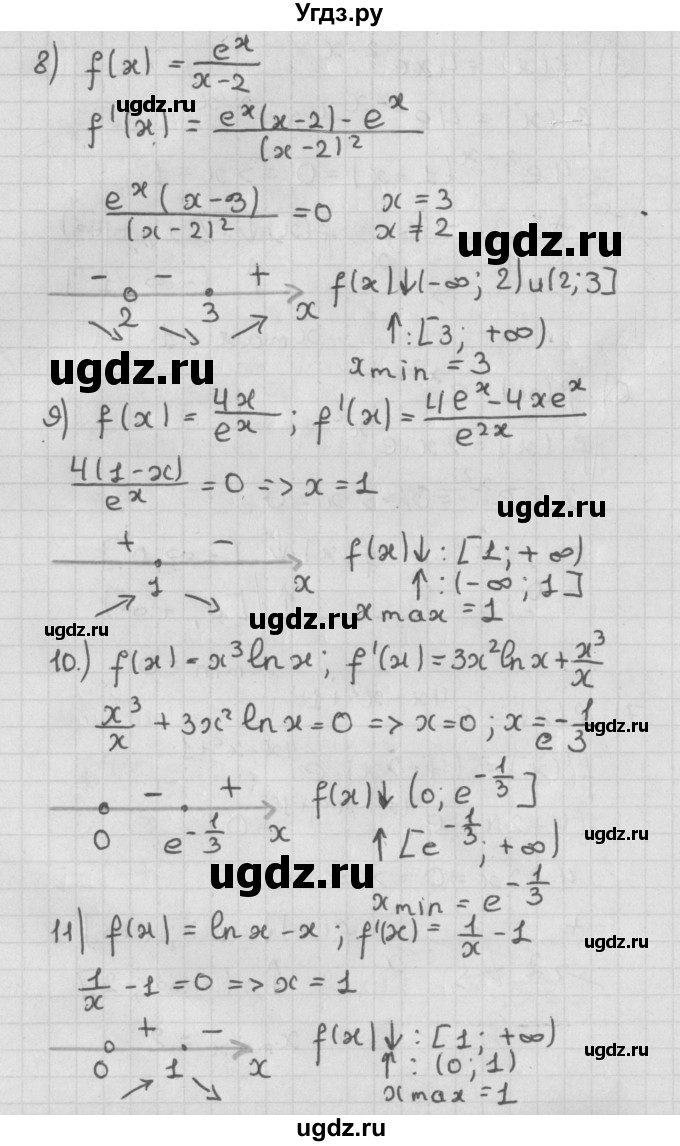 Угдз.ру
8) f(x) = e^x/(x-2)
ugdz.ru
f'(x) = (e^x(x-2) - e^x)/(x-2)²
e^x(x-3)/(x-2)² = 0   x = 3
x ≠ 2
ugdz.ru
- - +   f(x)↓(-∞; 2)∪(2;3]
2 3 x   ↑:[3; +∞)
ugdz.ru
x min = 3
9) f(x) = 4x/e^x ; f'(x) = (4e^x - 4xe^x)/e^2x
4(1-x)/e^x = 0 => x = 1
ugdz.ru
+ -   f(x)↓: [1; +∞)
1 x   ↑: (-∞; 1]
x max = 1
ugdz.ru
ugdz.ru
10.) f(x) = x³ ln x ; f'(x) = 3x² ln x + x³/x
x³/x + 3x² ln x = 0 => x = 0 ; x = e^-1/3
ugdz.ru
- +   f(x)↓ (0; e^-1/3]
0 e^-1/3 x   ↑ [e^-1/3; +∞)
ugdz.ru
ugdz.ru
x min = e^-1/3
11) f(x) = ln x - x ; f'(x) = 1/x - 1
ugdz.ru
1/x - 1 = 0 => x = 1
+ -   f(x)↓: [1; +∞)
ugdz.ru
0 1 x   ↑: (0; 1)
x max = 1
ugdz.ru